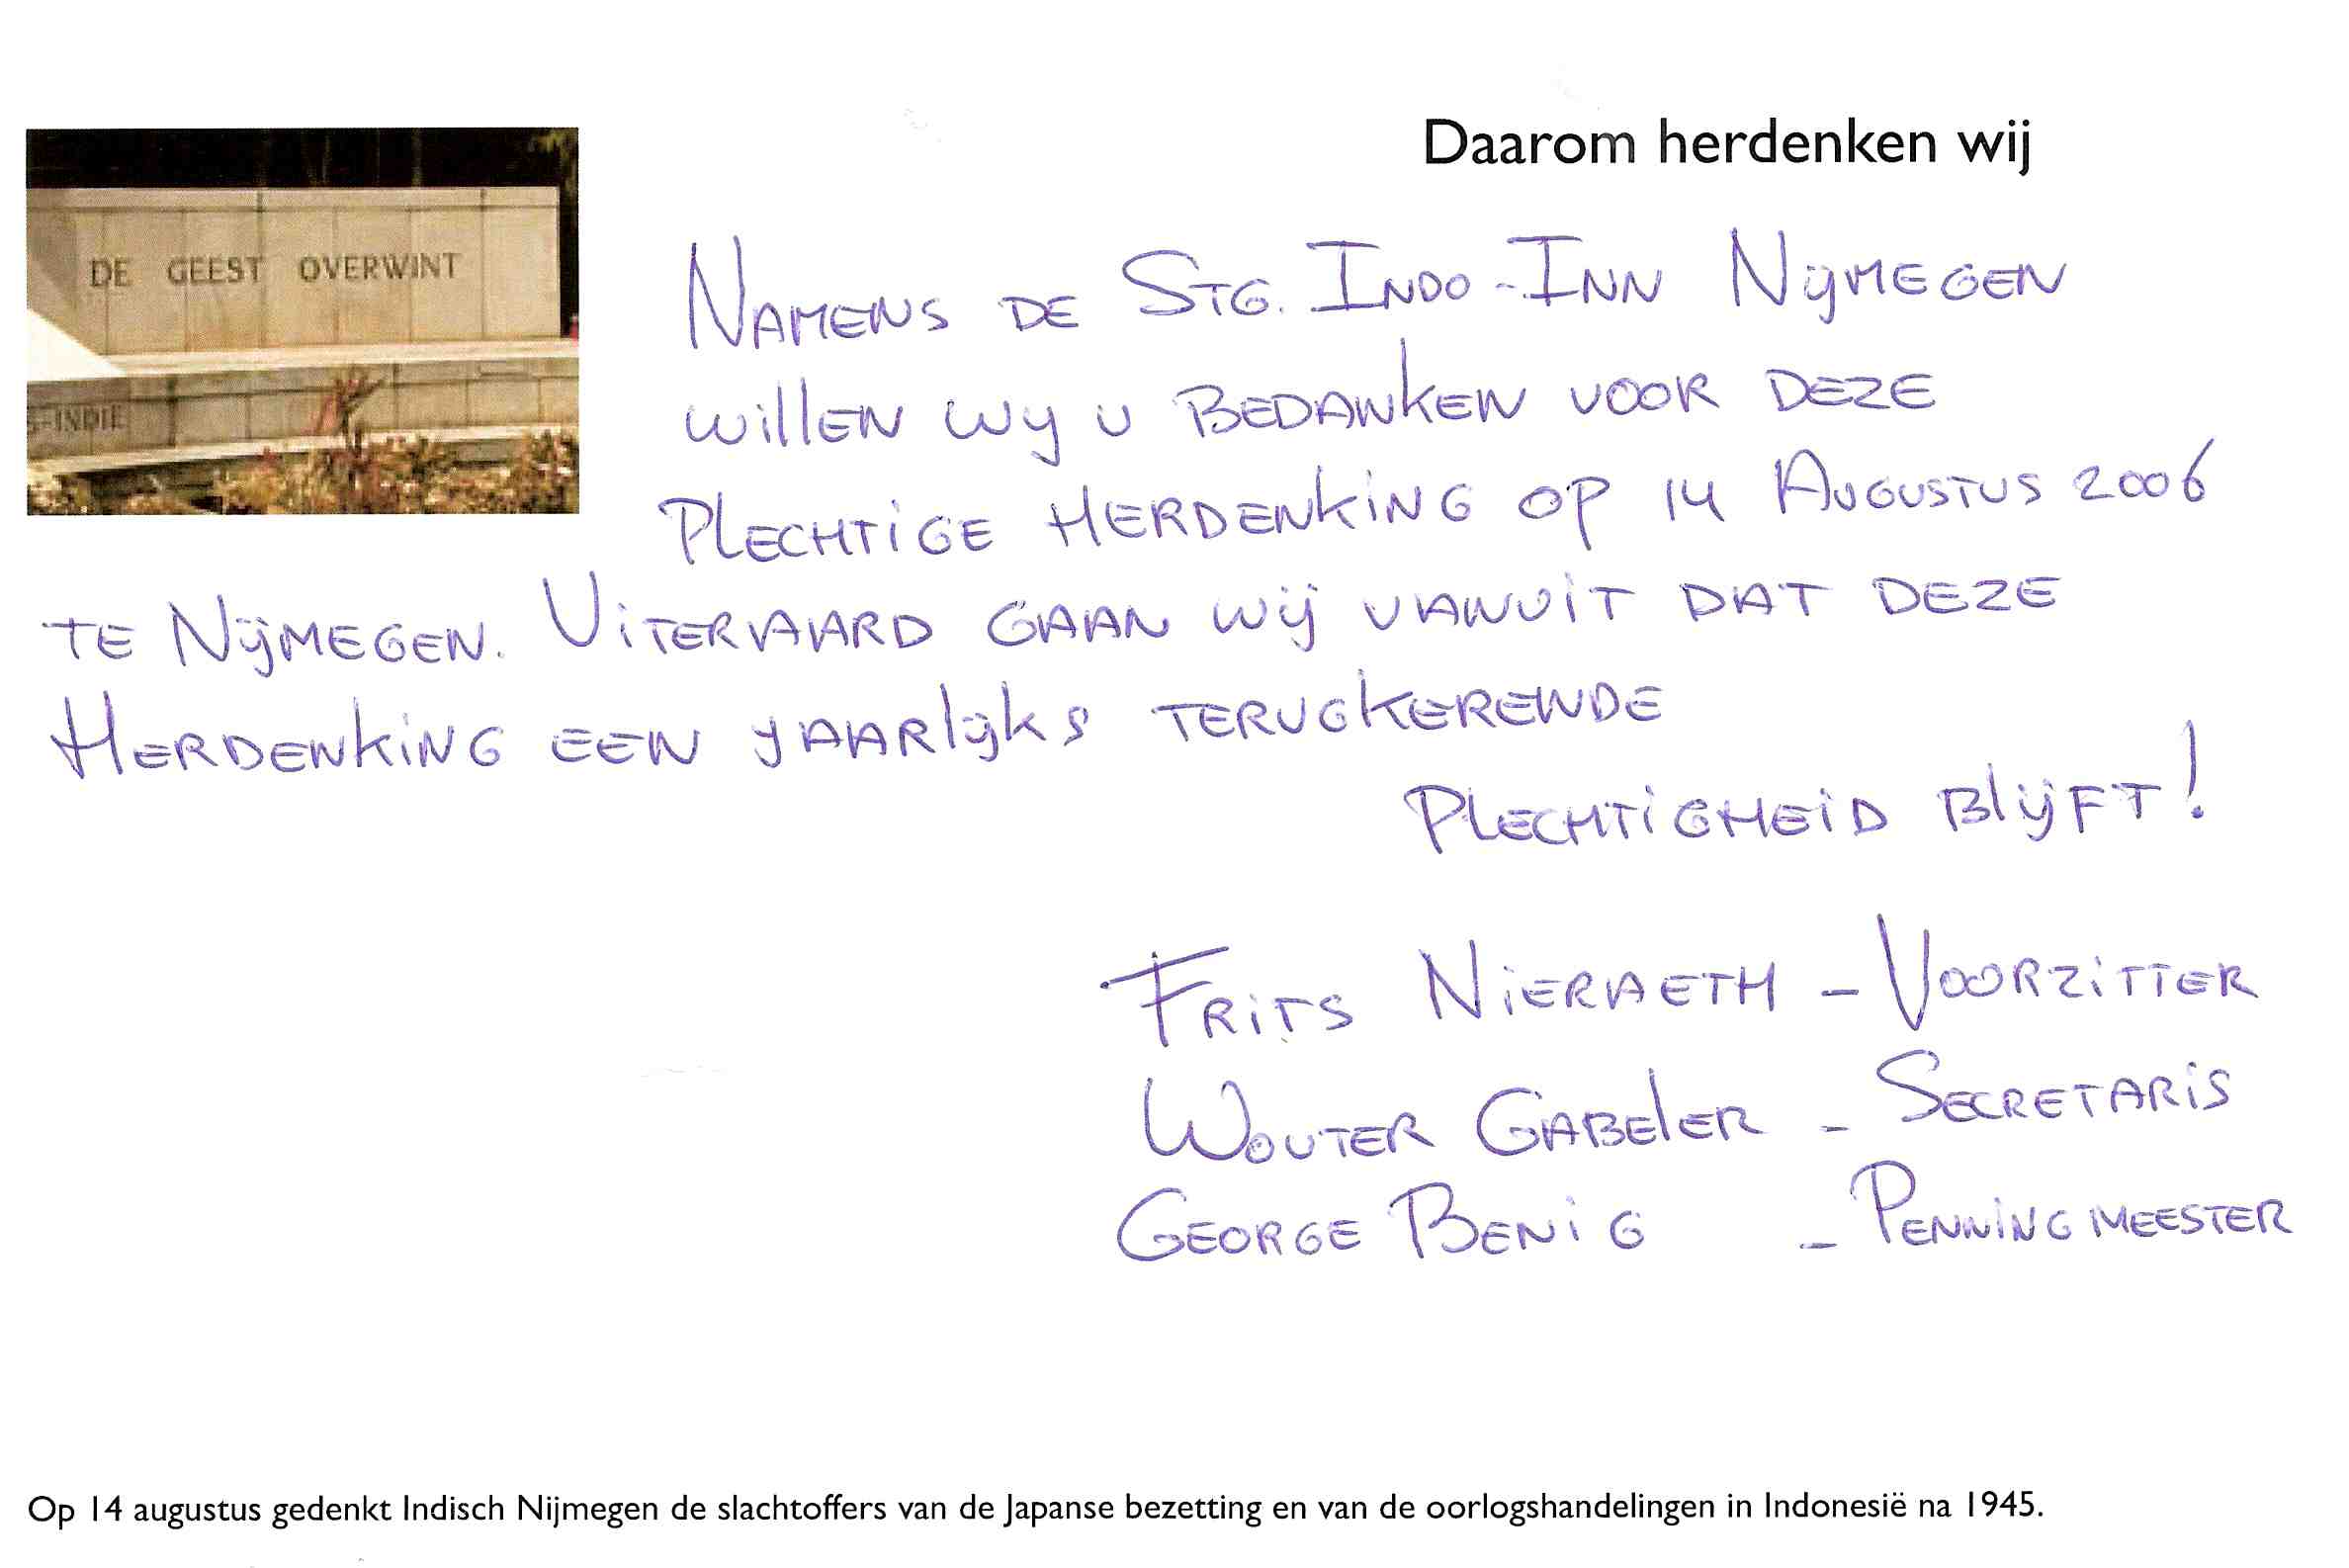 Daarom herdenken wij
DE GEEST OVERWINT
S-INDIE
NAMENS DE STG. INDO-INN NIJMEGEN
WILLEN WY U BEDANKEN VOOR DEZE
PLECHTIGE HERDENKING OP 14 AUGUSTUS 2006
TE NIJMEGEN. UITERAARD GAAN WIJ VANUIT DAT DEZE
HERDENKING EEN JAARLIJKS TERUGKERENDE
PLECHTIGHEID BLIJFT!
FRITS NIERAETH - VOORZITTER
WOUTER GABELER - SECRETARIS
GEORGE BENIG - PENNINGMEESTER
Op 14 augustus gedenkt Indisch Nijmegen de slachtoffers van de Japanse bezetting en van de oorlogshandelingen in Indonesië na 1945.